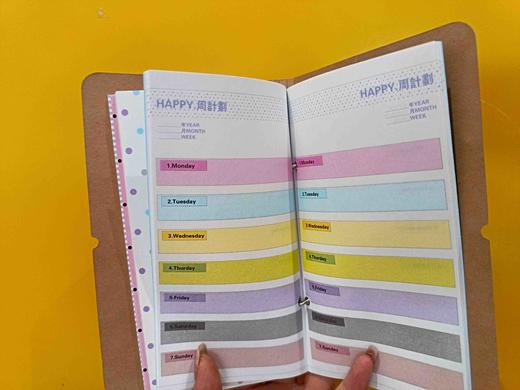 HAPPY.周計劃
年YEAR
月MONTH
WEEK
1.Monday
2.Tuesday
3.Wednesday
4.Thurday
5.Friday
6.Saturday
7.Sunday
HAPPY.周計劃
年YEAR
月MONTH
WEEK
1.Monday
2.Tuesday
3.Wednesday
4.Thurday
5.Friday
6.Saturday
7.Sunday